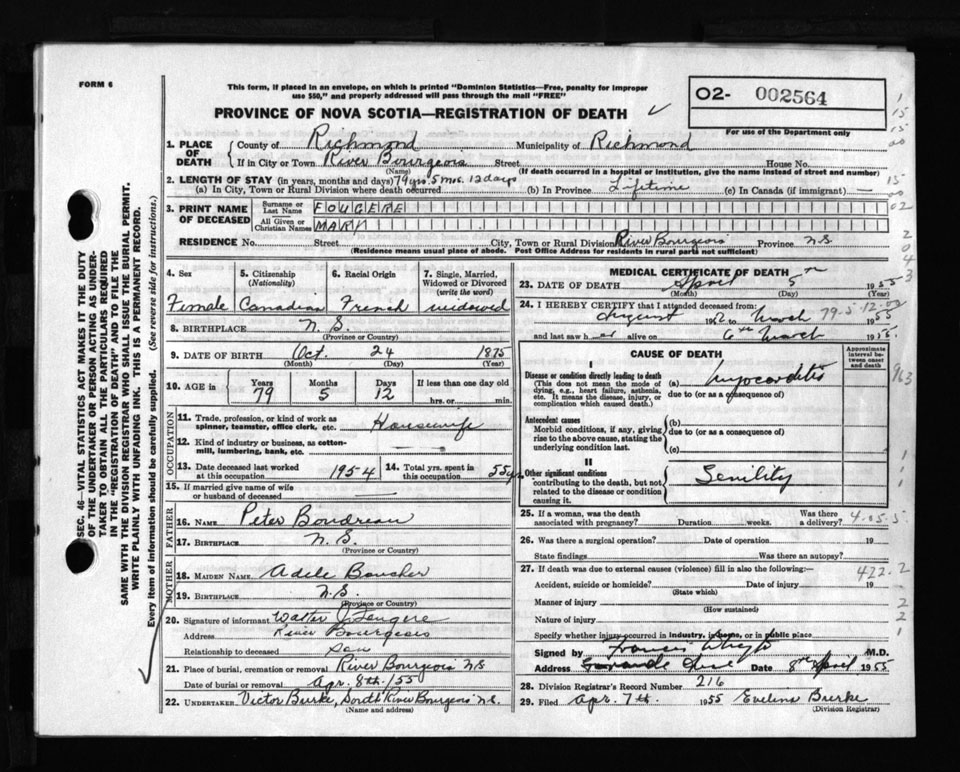 FORM 6
This form, if placed in an envelope, on which is printed "Dominion Statistics—Free, penalty for improper
use $50," and properly addressed will pass through the mail "FREE"
PROVINCE OF NOVA SCOTIA—REGISTRATION OF DEATH ✓
02- 002564
For use of the Department only
SEC. 46—VITAL STATISTICS ACT MAKES IT THE DUTY
OF THE UNDERTAKER OR PERSON ACTING AS UNDER-
TAKER TO OBTAIN ALL THE PARTICULARS REQUIRED
IN THE "REGISTRATION OF DEATH" AND TO FILE THE
SAME WITH THE DIVISION REGISTRAR WHO SHALL ISSUE THE BURIAL PERMIT.
WRITE PLAINLY WITH UNFADING INK. THIS IS A PERMANENT RECORD.
Every item of information should be carefully supplied. (See reverse side for instructions.)
1. PLACE OF DEATH
County of Richmond Municipality of Richmond
If in City or Town River Bourgeois Street House No.
(Name) (If death occurred in a hospital or institution, give the name instead of street and number)
2. LENGTH OF STAY (in years, months and days) 79 yrs. 5 mos. 12 days
(a) In City, Town or Rural Division where death occurred (b) In Province Lifetime (c) In Canada (if immigrant) —
3. PRINT NAME OF DECEASED
Surname or Last Name FOUGERE
All Given or Christian Names MARY
RESIDENCE No. Street City, Town or Rural Division River Bourgeois Province N.S
(Residence means usual place of abode. Post Office Address for residents in rural parts not sufficient)
4. Sex 5. Citizenship (Nationality) 6. Racial Origin 7. Single, Married, Widowed or Divorced (write the word)
Female Canadian French widowed
8. BIRTHPLACE N.S.
(Province or Country)
9. DATE OF BIRTH Oct. 24 1875
(Month) (Day) (Year)
10. AGE in Years Months Days If less than one day old
79 5 12 hrs. or min.
OCCUPATION
11. Trade, profession, or kind of work as
spinner, teamster, office clerk, etc. Housewife
12. Kind of industry or business, as cotton-
mill, lumbering, bank, etc.
13. Date deceased last worked at this occupation 1954 14. Total yrs. spent in this occupation 55 yrs
15. If married give name of wife
or husband of deceased —
FATHER
16. NAME Peter Boudreau
17. BIRTHPLACE N.S.
(Province or Country)
MOTHER
18. MAIDEN NAME Adele Boucher
19. BIRTHPLACE N.S.
(Province or Country)
20. Signature of informant Walter J Fougere
Address River Bourgeois
Relationship to deceased Son
21. Place of burial, cremation or removal River Bourgeois N.S
Date of burial or removal Apr. 8th/55
22. UNDERTAKER Victor Burke, South River Bourgeois N.S.
(Name and address)
MEDICAL CERTIFICATE OF DEATH
23. DATE OF DEATH April 5th 1955
(Month) (Day) (Year)
24. I HEREBY CERTIFY that I attended deceased from:
August 1952 to March 1955
79-5-12
and last saw her alive on 6th March 1955.
CAUSE OF DEATH
Approximate interval between onset and death
I
Disease or condition directly leading to death
(This does not mean the mode of
dying, e.g., heart failure, asthenia,
etc. It means the disease, injury, or
complication which caused death.)
(a) Myocarditis
due to (or as a consequence of)
Antecedent causes
Morbid conditions, if any, giving
rise to the above cause, stating the
underlying condition last.
(b)
due to (or as a consequence of)
(c)
II
Other significant conditions
contributing to the death, but not
related to the disease or condition
causing it.
Senility
25. If a woman, was the death associated with pregnancy? Duration weeks. Was there a delivery? 4-05-5
26. Was there a surgical operation? Date of operation 19
State findings Was there an autopsy?
27. If death was due to external causes (violence) fill in also the following:— 422-2
Accident, suicide or homicide? Date of injury 19
(State which)
Manner of injury
(How sustained)
Nature of injury
Specify whether injury occurred in industry, in home, or in public place
Signed by Francis M.D.
Address Date 8th April 1955
28. Division Registrar's Record Number 216
29. Filed Apr. 7th. 1955 Evelina Burke
(Division Registrar)